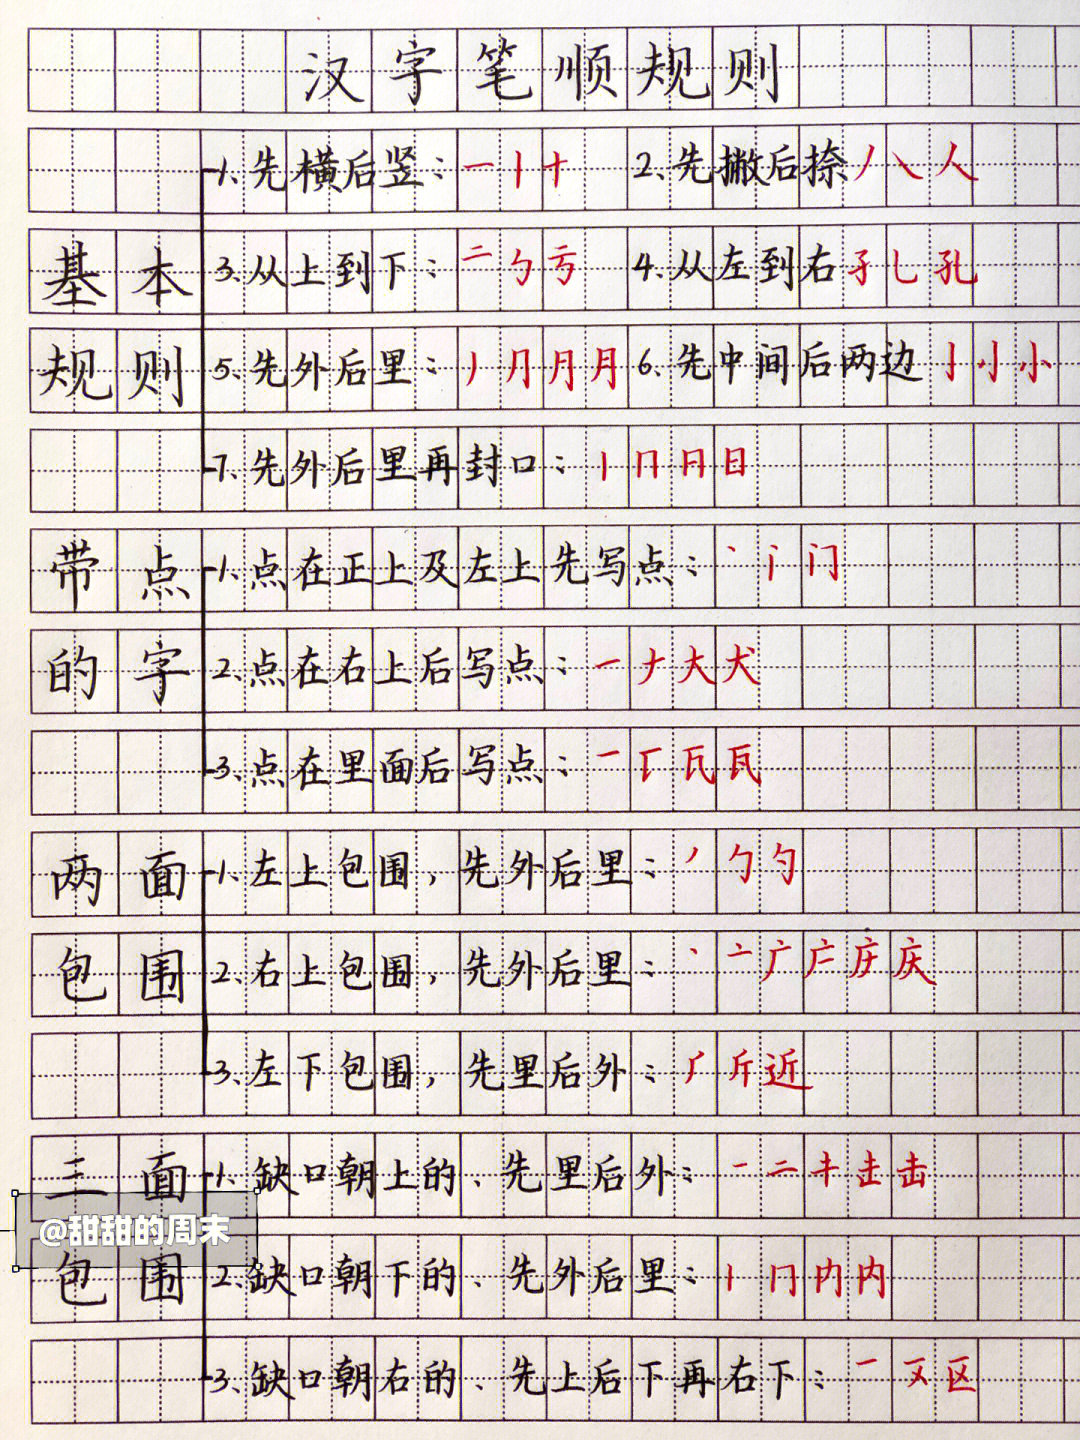 汉字笔顺规则
1、先横后竖：一丨十 2、先撇后捺丿乀人
基本 3、从上到下：二勹亏 4、从左到右孑乚孔
规则 5、先外后里：丿⺆月月 6、先中间后两边亅小小
7、先外后里再封口：丨冂日日
带点 1、点在正上及左上先写点：丶门
的字 2、点在右上后写点：一ナ大犬
3、点在里面后写点：一瓦
两面 1、左上包围，先外后里：丿勹勺
包围 2、右上包围，先外后里：丶亠广庆庆
3、左下包围，先里后外：斤近
三面 1、缺口朝上的、先里后外：一二キ击击
@甜甜的周末
包围 2、缺口朝下的、先外后里：丨冂内内
3、缺口朝右的、先上后下再右下：一区